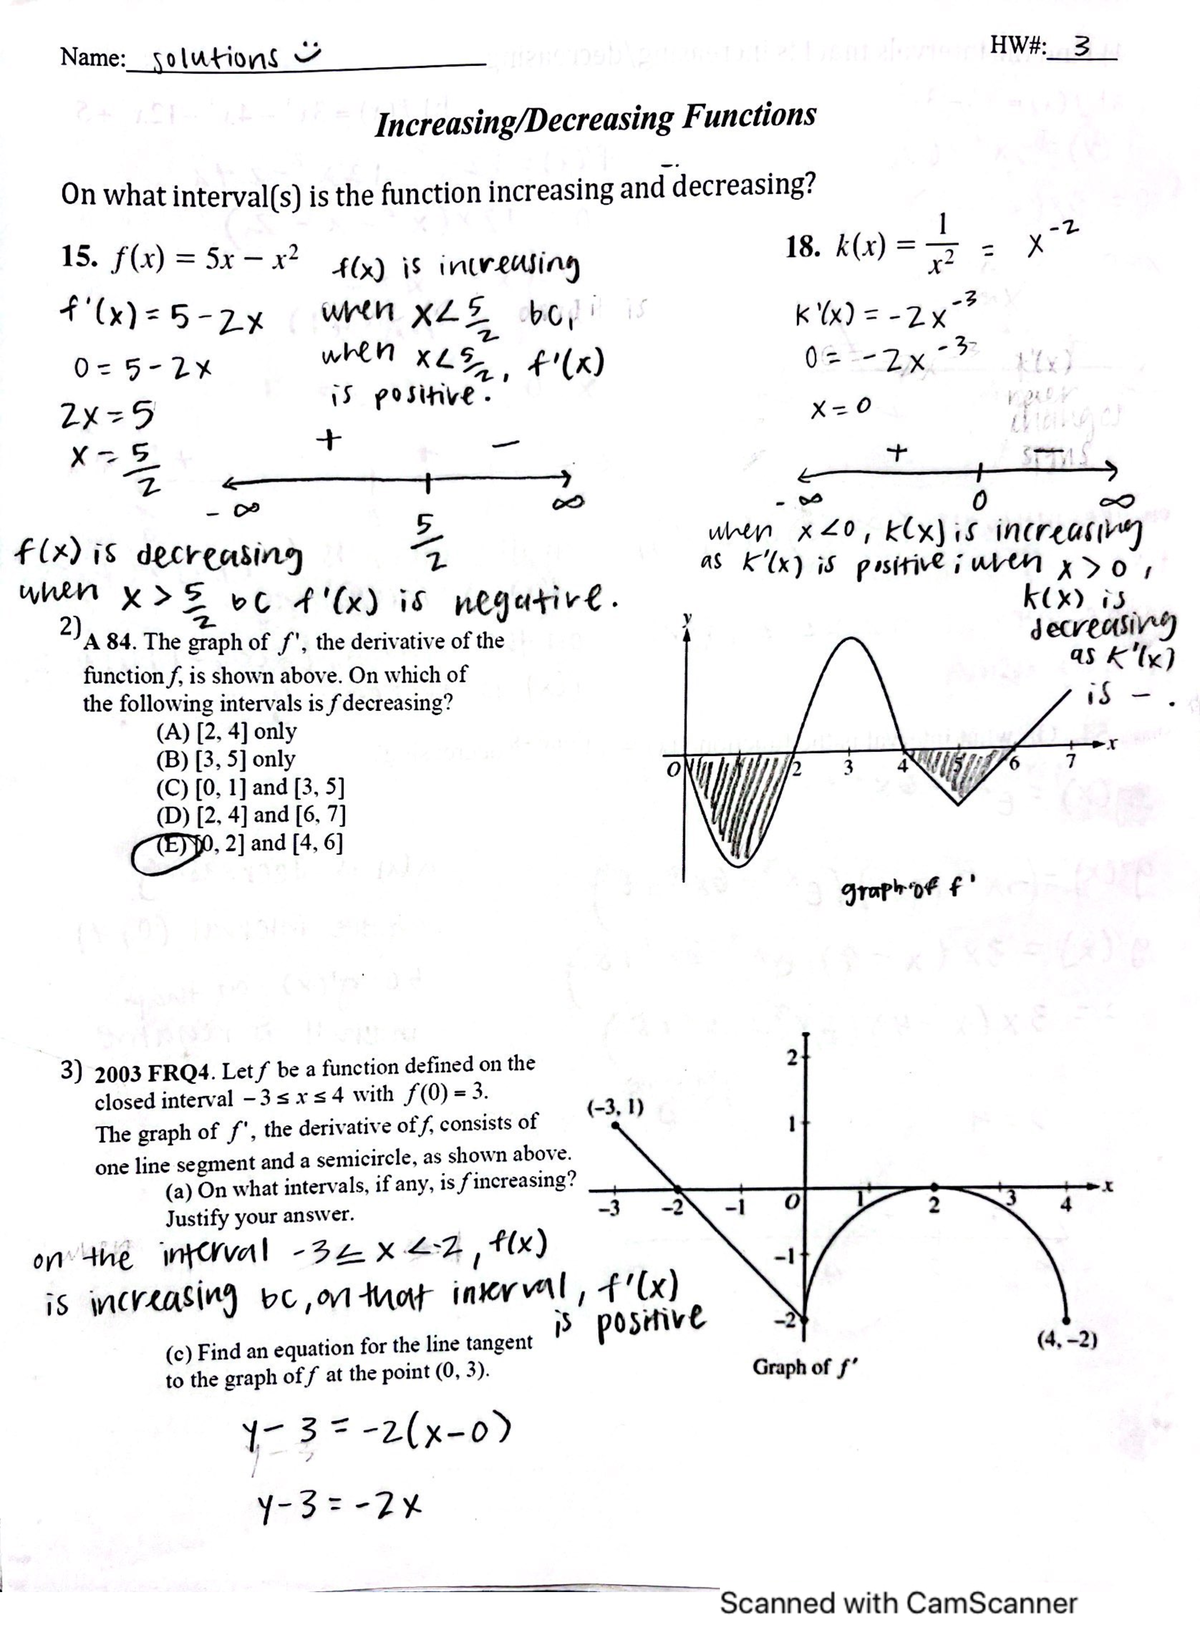 Name: solutions
HW#: 3
Increasing/Decreasing Functions
On what interval(s) is the function increasing and decreasing?
15. f(x) = 5x – x²
f'(x) = 5-2x
0 = 5-2x
2x = 5
x = 5/2
f(x) is increasing
when x<5/2 bc,
when x<5/2, f'(x)
is positive.
+ –
-∞ 5/2 ∞
f(x) is decreasing
when x > 5/2 bc f'(x) is negative.
18. k(x) = 1/x² = x⁻²
k'(x) = -2x⁻³
0 = -2x⁻³
x = 0
+ –
-∞ 0 ∞
when x<0, k(x) is increasing
as k'(x) is positive; when x>0,
k(x) is
decreasing
as k'(x)
is – .
2) A 84. The graph of f', the derivative of the
function f, is shown above. On which of
the following intervals is f decreasing?
(A) [2, 4] only
(B) [3, 5] only
(C) [0, 1] and [3, 5]
(D) [2, 4] and [6, 7]
(E) [0, 2] and [4, 6]
y
O 2 3 4 5 6 7 x
graph of f'
3) 2003 FRQ4. Let f be a function defined on the
closed interval –3 ≤ x ≤ 4 with f(0) = 3.
The graph of f', the derivative of f, consists of
one line segment and a semicircle, as shown above.
(a) On what intervals, if any, is f increasing?
Justify your answer.
on the interval -3≤x<-2, f(x)
is increasing bc, on that interval, f'(x)
is positive
(c) Find an equation for the line tangent
to the graph of f at the point (0, 3).
y-3 = -2(x-0)
y-3 = -2x
2
(–3, 1)
1
–3 –2 –1 O 1 2 3 4 x
–1
–2
(4, –2)
Graph of f'
Scanned with CamScanner